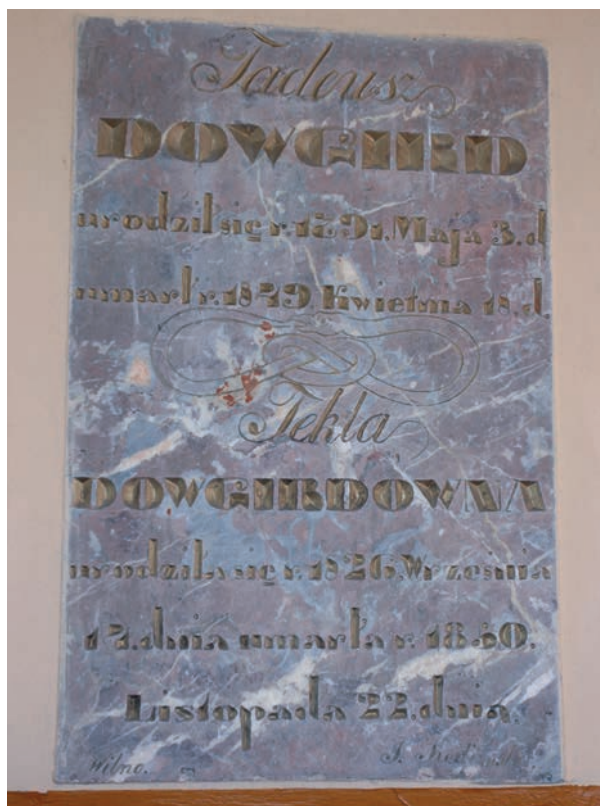 Tadeusz
DOWGIRD
urodził się r. Maja 3. d
umarł r. 1849. Kwietnia 18. d.
Tekla
DOWGIRDOWNA
urodziła się r. 1826. Września
12. dnia umarła r. 1850.
Listopada 22. dnia.
Wilno. J.